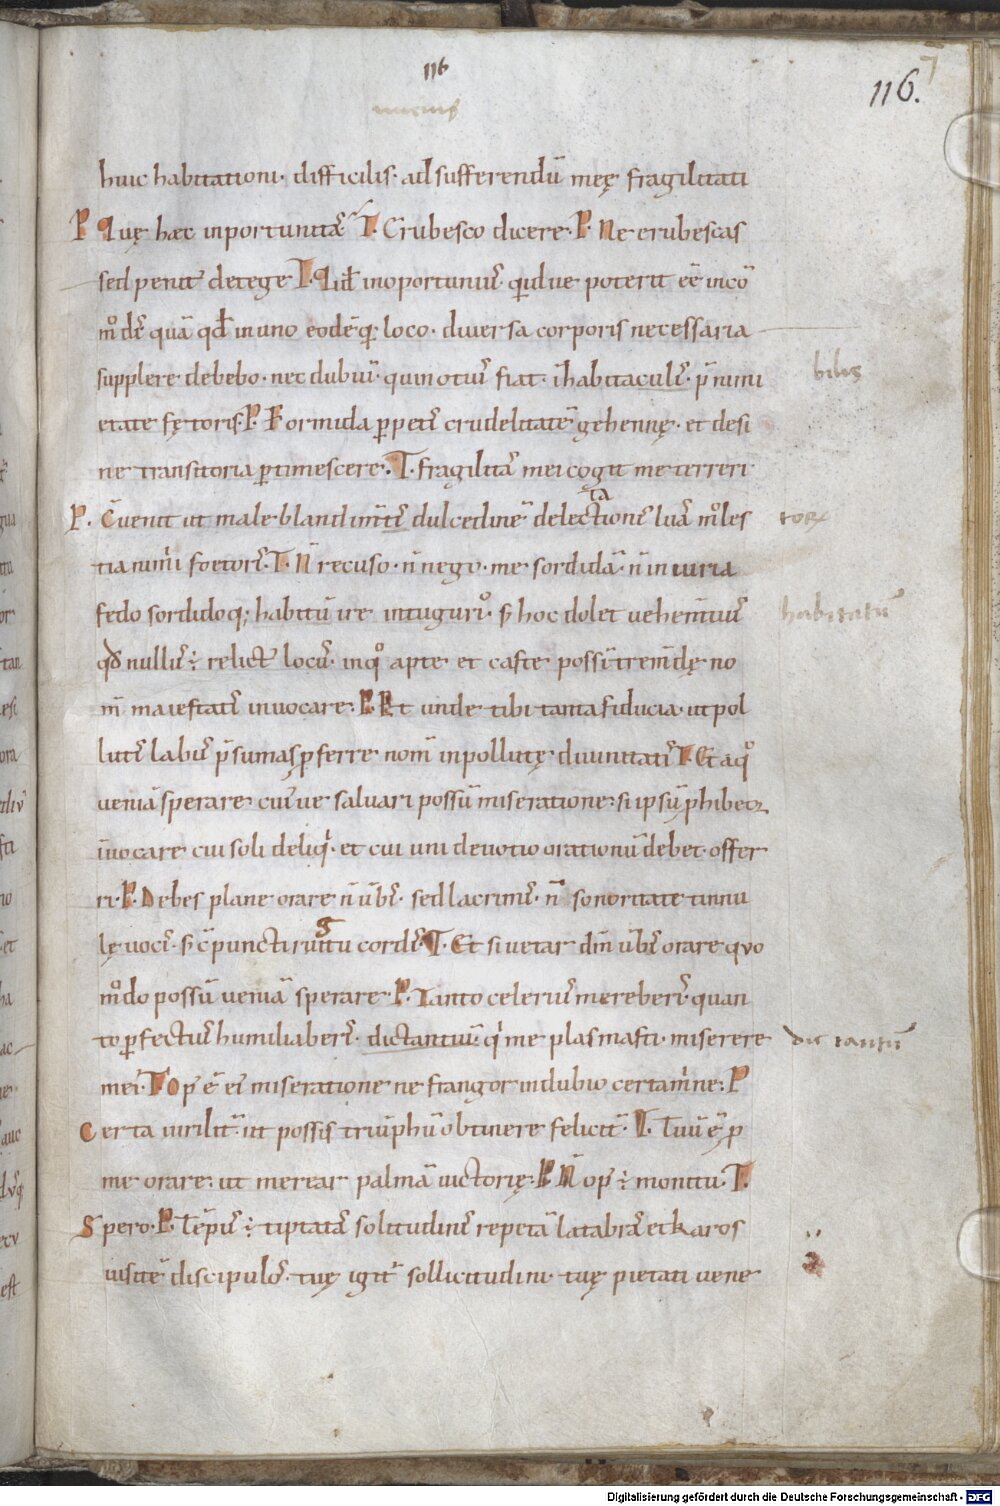 116
116.
7
huic habitationi · difficilis · ad sufferendū meę fragilitati
P Quę hæc inportunitas̄ T. Erubesco dicere · P. Ne erubescas
sed penit᷒ detege T. Qid̄ inoportuniuꝰ quidue poterit eē incō
mod̄ꝰ quā qd̄ in uno eodēq; loco · diuersa corporis necessaria
supplere debebo · nec dubiū · quin otiuꝰ fiat · īhabitaculū · p̄ nimi
bilis
etate fętoris · P. Formida ꝑpetis crudelitatē gehennę · et desi
ne transitoria ꝑtimescere · T. fragilitas mei cogit me terreri
P. C̄uenit ut male blandim̄tis dulcedinē delectationis luas moles
ta
torꝝ
tia nimii foetoris · T. N̄ recuso · n̄ nego · me sordidā · n̄ iniuria
fedo sordidoq; habitū ire in tugurio · s; hoc dolet uehem̄tiuꝰ
habitatū
qđ nullus ÷ relictꝰ locus · in qͦ apte et caste possī trem̄dę no
m̄ maiestatis inuocare · P. Et unde tibi tanta fiducia · ut pol
lutis labiis p̄sumas ꝓferre nom̄ inpollutę diuinitatis T. Et a qͦ
ueniā sperare cuiusue saluari possū miseratione · si ipsū ꝓhibeor
īuocare cui soli deliqi · et cui uni deuotio orationū debet offer
ri · P. Debes plane orare n̄ ūbis · sed lacrimis · n̄ sonoritate tinnu
lę uocis · s; c̄puncti rugitu cordis T. Et si uetar dm̄ ūbis orare quo
modo possū ueniā sperare · P. Tanto celeriꝰ merēberis · quan
to ꝑfectiꝰ humiliaberis · dictantum q me plasmasti · miserere
dic tantū
mei · T. Opꝰ ē eiꝰ miseratione ne frangor in dubio certamine · P
Certa uirilit̄ · ut possis triūphū obtinere felicit̄ · T. Tuū ē p
me orare · ut merear palmā uictorię · P. N̄ opꝰ ÷ monitu · T.
Spero · P. Tēpꝰ ÷ ut optatas solitudinis repetā latebras et karos
uisitē discipulos · tuę igit̄ sollicitudini · tuę pietati uene
Digitalisierung gefördert durch die Deutsche Forschungsgemeinschaft · DFG